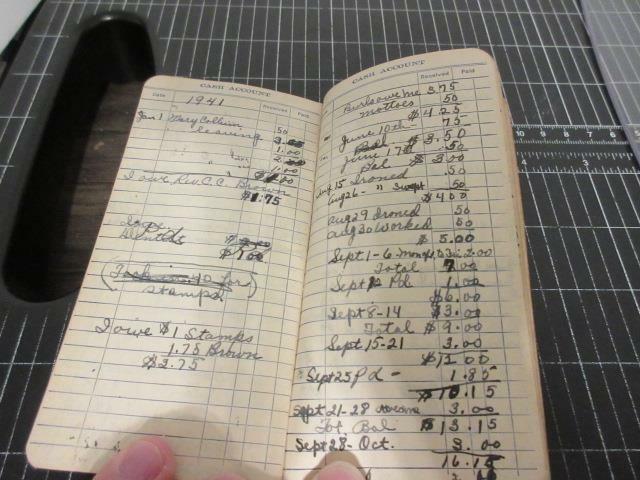 CASH ACCOUNT
Date 1941 Received Paid
Jan 1 Mary Collum 50
cleaning 3.00
" 1.00
" 2.00
I owe Rev. C.C. Brown
$1.75
Dentist $1.00
stamps
I owe $1 Stamps
1.75 Brown
$2.75
CASH ACCOUNT
Received Paid
owe me 3.75
mottoes 50
$4.25
June 10th 75
$3.50
June 17 .50
Bal $3.00
Aug 15 Ironed .50
Aug 26 - " Swept .50
$4.00
Aug 29 Ironed 50
Aug 30 Worked 50
$5.00
Sept 1-6 2.00
Total 7.00
Sept 12 Pd 1.00
$6.00
Sept 8-14 $3.00
Total $9.00
Sept 15-21 3.00
$12.00
Sept 25 Pd - 1.85
$10.15
Sept 21-28 3.00
Tot. Bal $13.15
Sept 28- Oct. 3.00
16.15
7 8 9 10